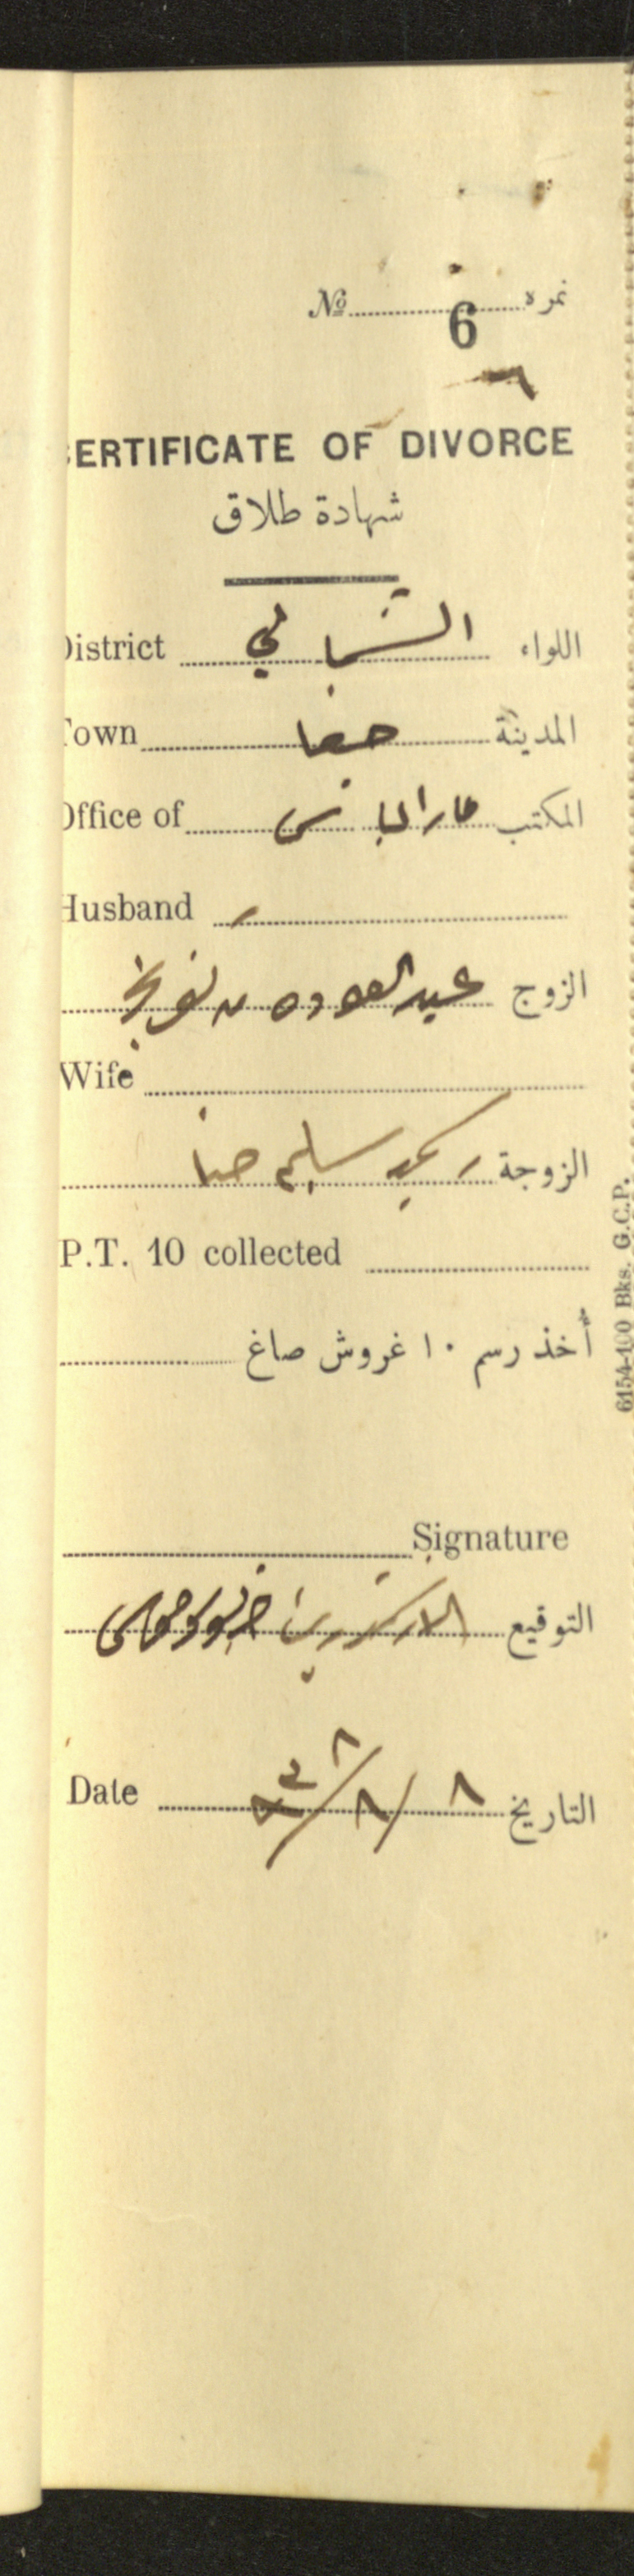 № 6 نمره
٦
CERTIFICATE OF DIVORCE
شهادة طلاق
District الشمالي اللواء
Town حيفا المدينة
Office of المكتب
Husband
الزوج
Wife
الزوجة سليم حنا
P.T. 10 collected
أخذ رسم ١٠ غروش صاغ
Signature
التوقيع
Date ٨/٨ التاريخ
6154-100 Bks. G.C.P.